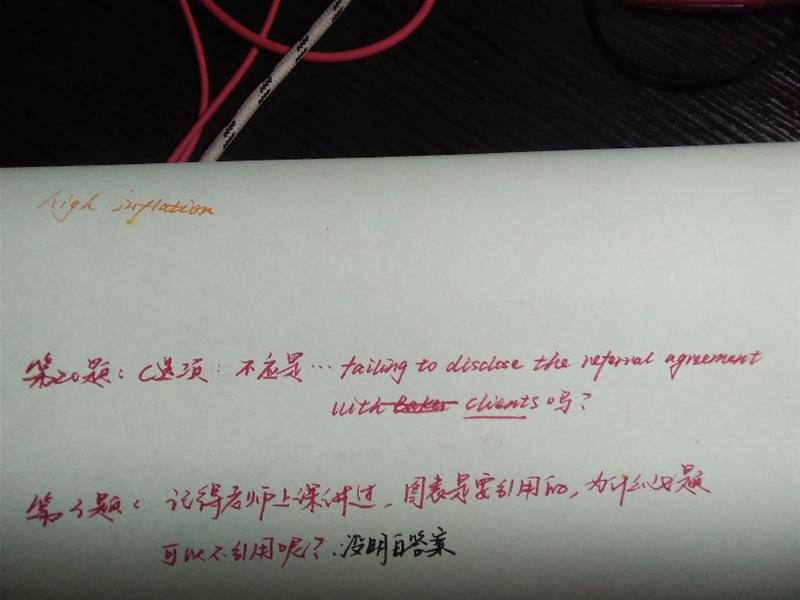 high inflation
第20题：C选项：不应是… failing to disclose the referral agreement
with clients吗？
第3题：记得老师上课讲过，图表是要引用的，为什么此题
可以不引用呢？没明白答案